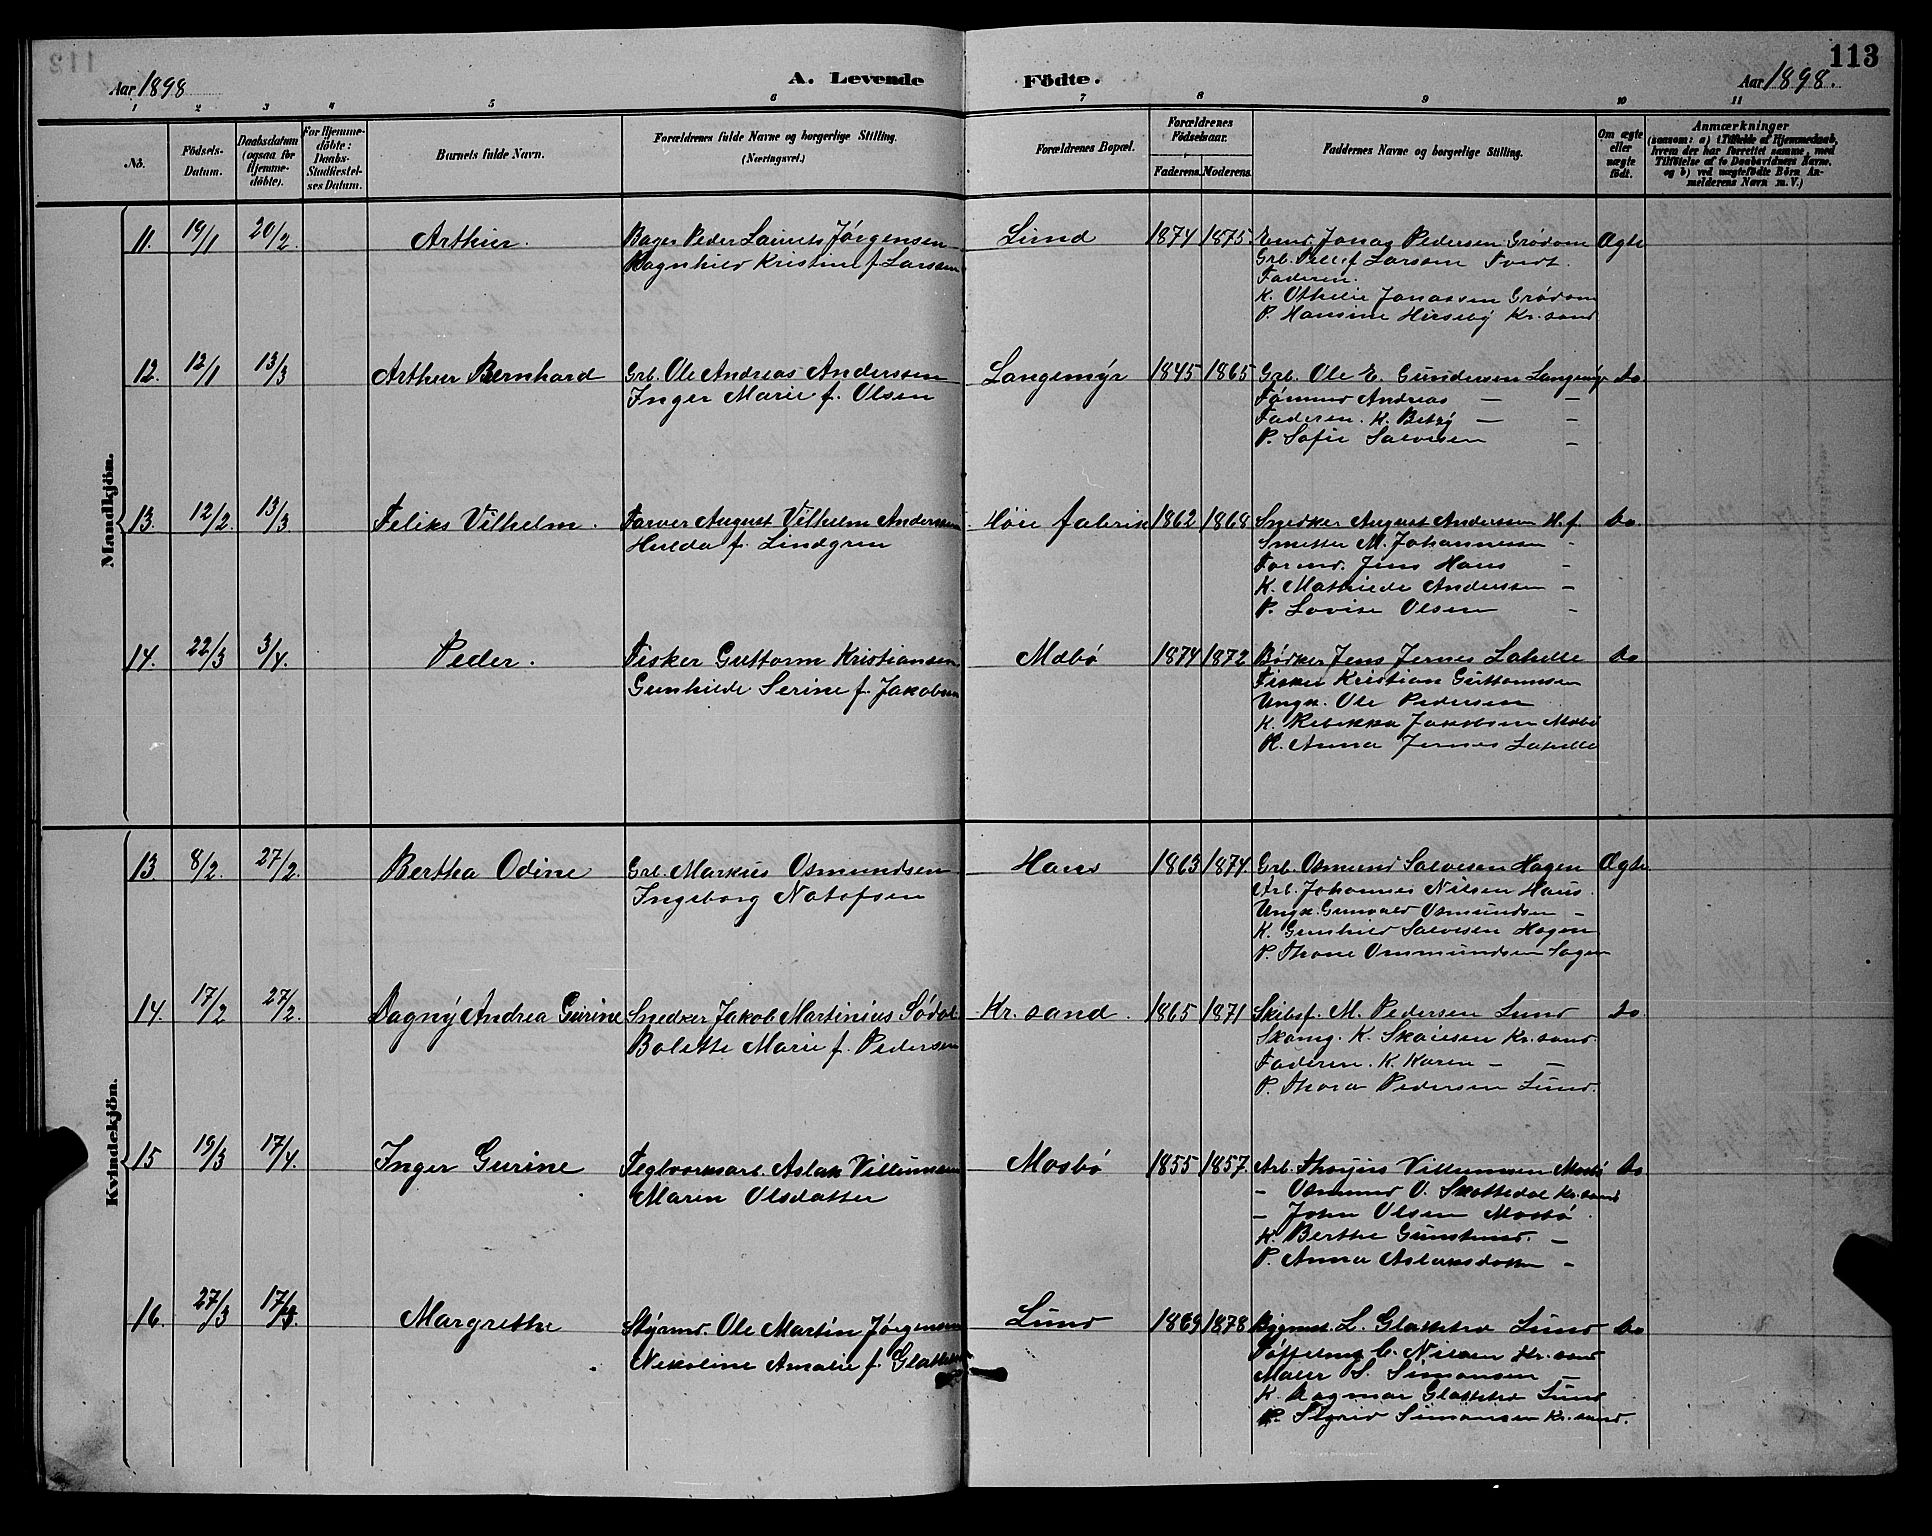 113
Aar 1898
A. Levende Födte.
Aar 1898.
1 2 3 4 5 6 7 8 9 10 11
No. Födsels-Datum. Daabsdatum (ogsaa for Hjemme-döbte). For Hjemme-döbte: Daabs-Stadfæstel-ses Datum. Barnets fulde Navn. Forældrenes fulde Navne og borgerlige Stilling. (Næringsvei.) Forældrenes Bopæl. Forældrenes Födselsaar. Faderens. Moderens. Faddernes Navne og borgerlige Stilling. Om ægte eller uægte födt. Anmærkninger (saasom: a) Tilfælde af Hjemmedaab, hvem der har forrettet samme, med Tilföielse af to Daabsvidners Navne, og b) ved uægtefödte Börn An-melderens Navn m. V.)
Mandkjön.
11. 19/1 20/2. Arthur. Bager Peder Laurits Jørgensen Lund 1874 1875 Jonas Pedersen Grødem Ægte
Ragnhild Kristine f. Larsen Grb. Larsen Tvedt.
Faderen.
K. Othilie Jonassen Grødem
P. Hansine Kr.sand
12. 12/1 13/3 Arthur Bernhard Grb. Ole Andreas Anderssen Langemyr 1845 1865 Grb. Ole E. Gundersen Langemyr do.
Inger Marie f. Olsen Tømmer Andreas — —
Faderen. K. Betzy — —
P. Sofie Salvesen —
13. 12/2. 13/3 Feliks Vilhelm. Farver August Vilhelm Anderssen Høie fabrik 1862 1868 Snedker August Anderssen H. f. do.
Hulda f. Lindgren M. Johannessen -
Formd. Jens Haus -
K. Mathilde Andersen -
P. Lovise Olsen -
14. 22/3 3/4. Peder. Fisker Guttorm Kristiansen Mebø 1874 1872 Bødker Jens Jernes Lahelle do
Gunhilde Serine f. Jakobsen Fisker Kristian Guttormsen
Ungk. Ole Pedersen
K. Rebekka Jakobsen Mebø
P. Anna Jernes Lahelle
Kvindekjön.
13. 8/2. 27/2. Bertha Odine Grb. Markus Osmundsen Haus 1863 1874 Grb. Osmund Salvesen Hagen Ægte
Ingeborg Notofsen Arb. Johannes Nilsen Haus.
Ungk. Gunvald Osmundsen -
K. Gunhild Salvesen Hagen
P. Thone Osmundsen
14. 17/2 27/2. Dagny Andrea Gurine Snedker Jakob Martinius Sødal Kr. sand. 1865 1871 Skibsf. M. Pedersen Lund do
Bolette Marie f. Pedersen K. Skaiesen Kr.sand
Faderen. K. Karen — —
P. Thora Pedersen Lund.
15 19/3 17/4. Inger Gurine Teglverksarb. Aslak Villumsen Mosbø 1855 1857. Arb. Villumsen Mosbø do
Maren Olsdatter - Osmund O. Skottedal Kr.sand
- John Olsen Mosbø
K. Berthe -
P. Anna Aslaksdatter -
16. 27/3 17/4. Margrethe Styrmd. Ole Martin Jørgensen Lund 1869 1878 L. Lund do
Nikoline Amalie f. C. Nilsen Kr.sand
Maler S. Simonsen —
K. Dagmar Lund
P. Sigrid Simonsen Kr.sand.